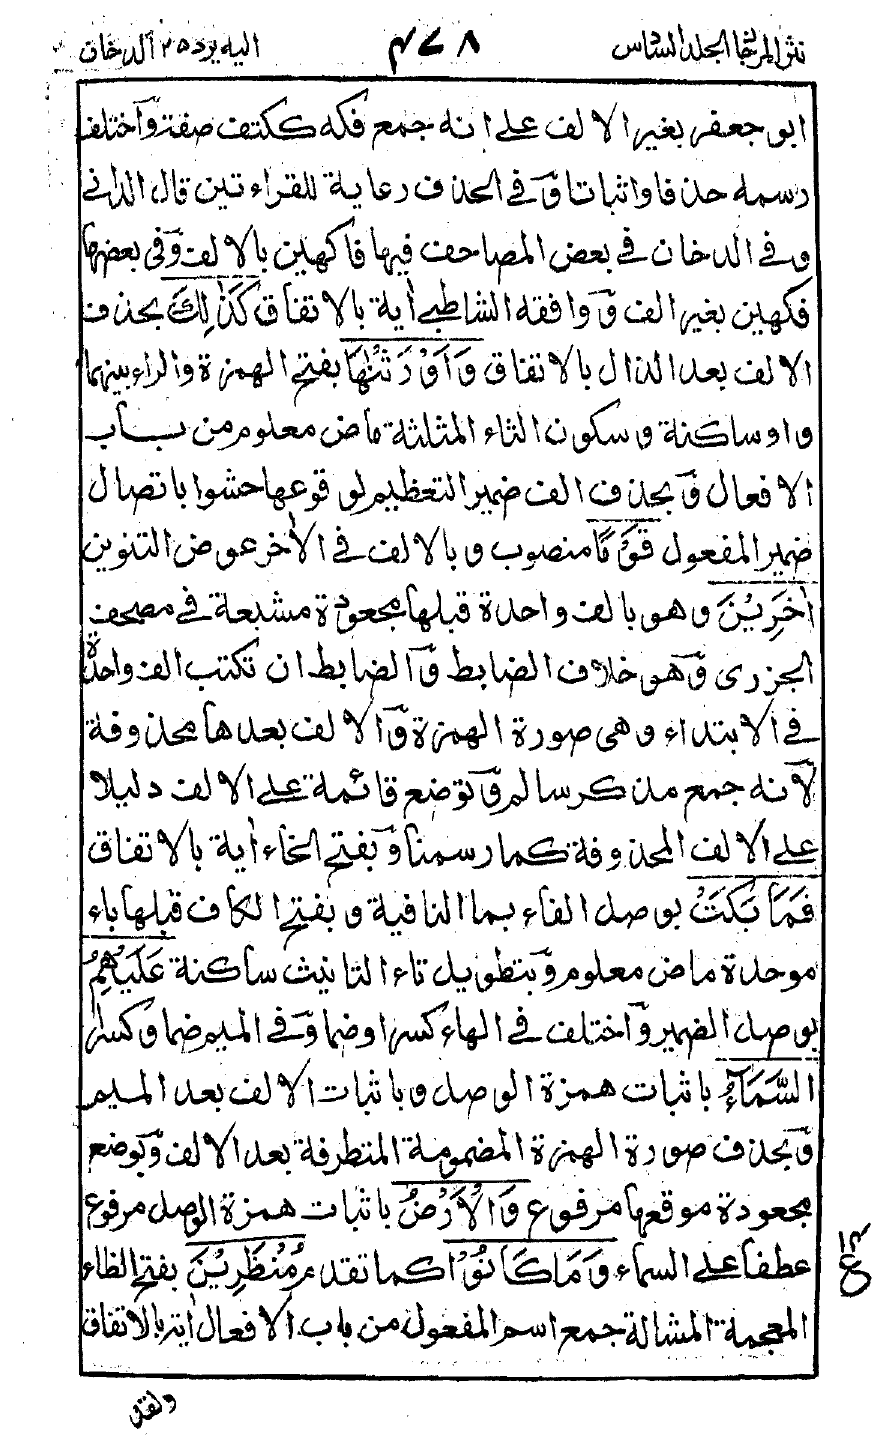 نثر المرجان الجلد السادس ٤٧٨ اليه يرد ٢٥ الدخان
ابو جعفر بغير الالف على انه جمع فكه ككتف صفة وآختلف
رسمه حذفا واثباتا وٓفي الحذف رعاية للقراءتين قال الداني
وفي الدخان في بعض المصاحف فيها فاكهين بالالف وٓفي بعضها
فكهين بغير الف وٓوافقه الشاطبي اٰية بالاتفاق كَذٰلِكَ بحذف
الالف بعد الذال بالاتفاق وَاَوْرَثْنٰهَا بفتح الهمزة والراء بينهما
واو ساكنة وسكون الثاء المثلثة ماض معلوم من باب
الافعال وٓبحذف الف ضمير التعظيم لوقوعها حشوا باتصال
ضمير المفعول قَوْمًا منصوب وبالالف في الاٰخر عوض التنوين
اٰخَرِيْنَ وهو بالف واحدة قبلها مجعودة مشبعة في مصحف
الجزرى وٓهو خلاف الضابط وٓالضابط ان تكتب الف واحدة
في الابتداء وهى صورة الهمزة وٓالالف بعدها محذوفة
لآنه جمع مذكر سالم وٓتوضع قائمة على الالف دليلا
على الالف المحذوفة كما رسمنا وٓبفتح الخاء اٰية بالاتفاق
فَمَا بَكَتْ بوصل الفاء بما النافية وبفتح الكاف قبلها باء
موحدة ماض معلوم وٓبتطويل تاء التانيث ساكنة عَلَيْهِمُ
بوصل الضمير وٓاختلف في الهاء كسرا وضما وٓفي الميم ضما وكسرا
السَّمَآءُ باثبات همزة الوصل وباثبات الالف بعد الميم
وٓبحذف صورة الهمزة المضمومة المتطرفة بعد الالف وٓبوضع
مجعودة موقعها مرفوع وَالْاَرْضُ باثبات همزة الوصل مرفوع
عطفا على السماء وَمَا كَانُوْا كما تقدم مُنْظَرِيْنَ بفتح الظاء
المعجمة المشالة جمع اسم المفعول من باب الافعال اٰية بالاتفاق
ع
ولقد